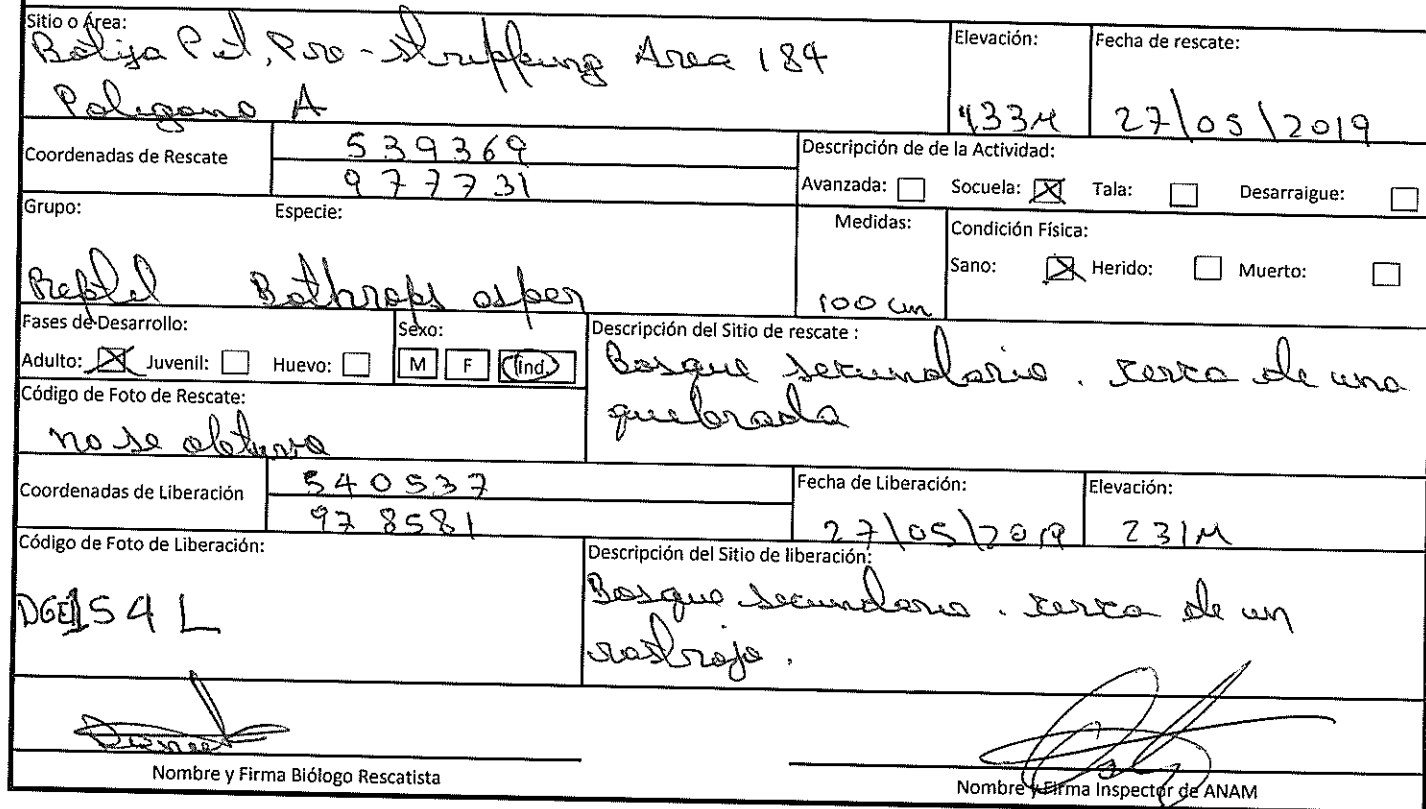 Sitio o Área:
Botija Pit, Pre-stripping Area 184
Poligono A
Elevación:
133M
Fecha de rescate:
27/05/2019
Coordenadas de Rescate
539369
977731
Descripción de de la Actividad:
Avanzada: Socuela: Tala: Desarraigue:
Grupo: Especie:
Reptil Bothrops asper
Medidas:
100 cm
Condición Física:
Sano: Herido: Muerto:
Fases de Desarrollo:
Adulto: Juvenil: Huevo:
Sexo:
M F Ind.
Código de Foto de Rescate:
no se obtuvo
Descripción del Sitio de rescate :
Bosque secundario. cerca de una
quebrada
Coordenadas de Liberación
540537
978581
Fecha de Liberación:
27/05/2019
Elevación:
231M
Código de Foto de Liberación:
DGE154L
Descripción del Sitio de liberación:
Bosque secundario. cerca de un
rastrojo.
Nombre y Firma Biólogo Rescatista
Nombre y Firma Inspector de ANAM